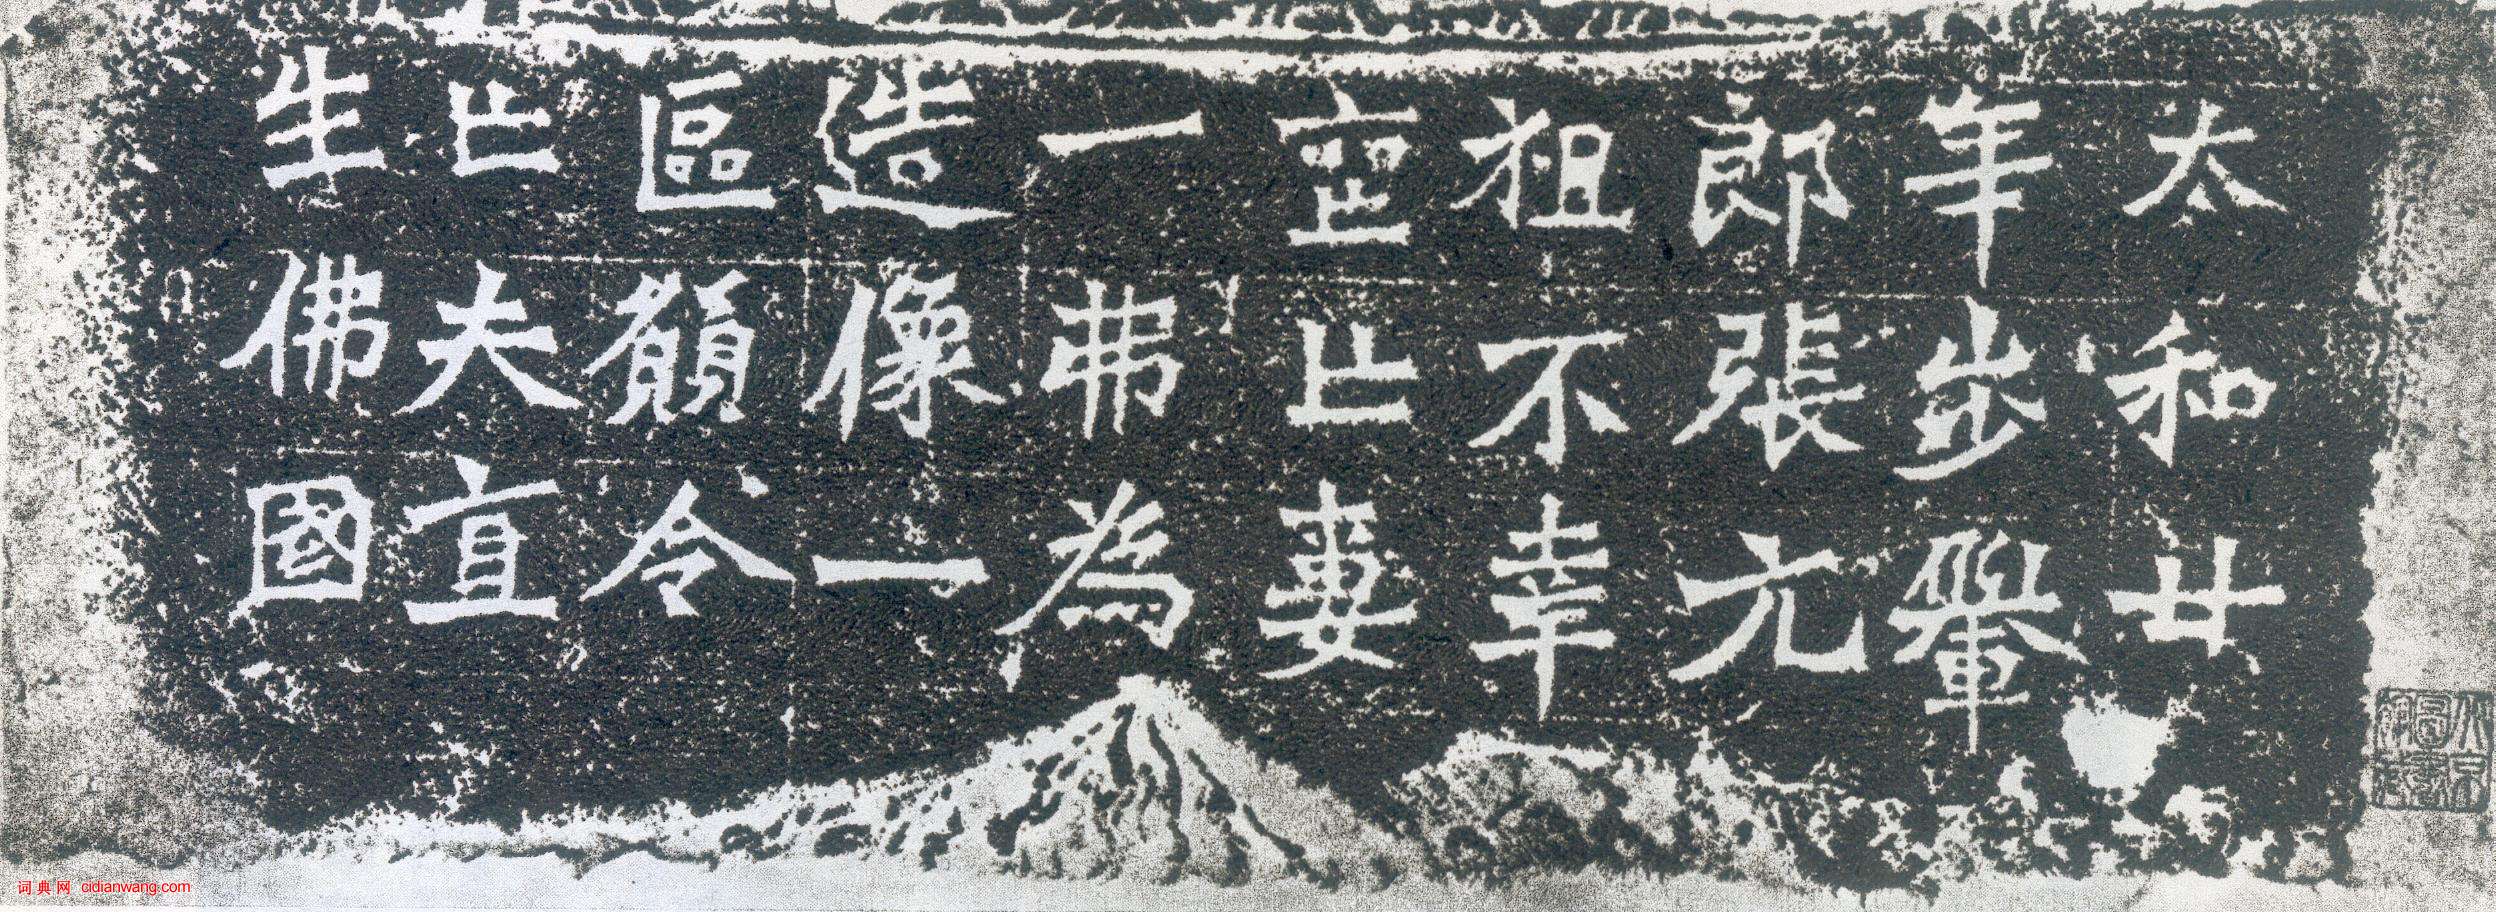 太和廿
年步轝
郎張元
祖不幸
喪亡妻
一弗為
造像一
區願令
亡夫直
生佛國
词典网 cidianwang.com